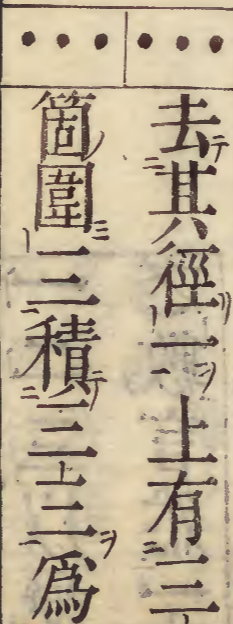 去其徑一上有三
箇圍三積三二爲